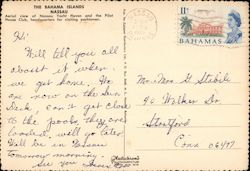 THE BAHAMA ISLANDS
NASSAU
Aerial view of Nassau Yacht Haven and the Pilot
House Club, headquarters for visiting yachtsmen.
Hi:
Will tell you all
about it when
we get home. We
are now on the Sun
Deck, can't get close
to the pools, they are
loaded, will go later.
Will be in Nassau
tomorrow morning.
See you
11c
BAHAMAS
Mr & Mrs G Stabile
90 Walker Dr
Stratford
Conn 06497